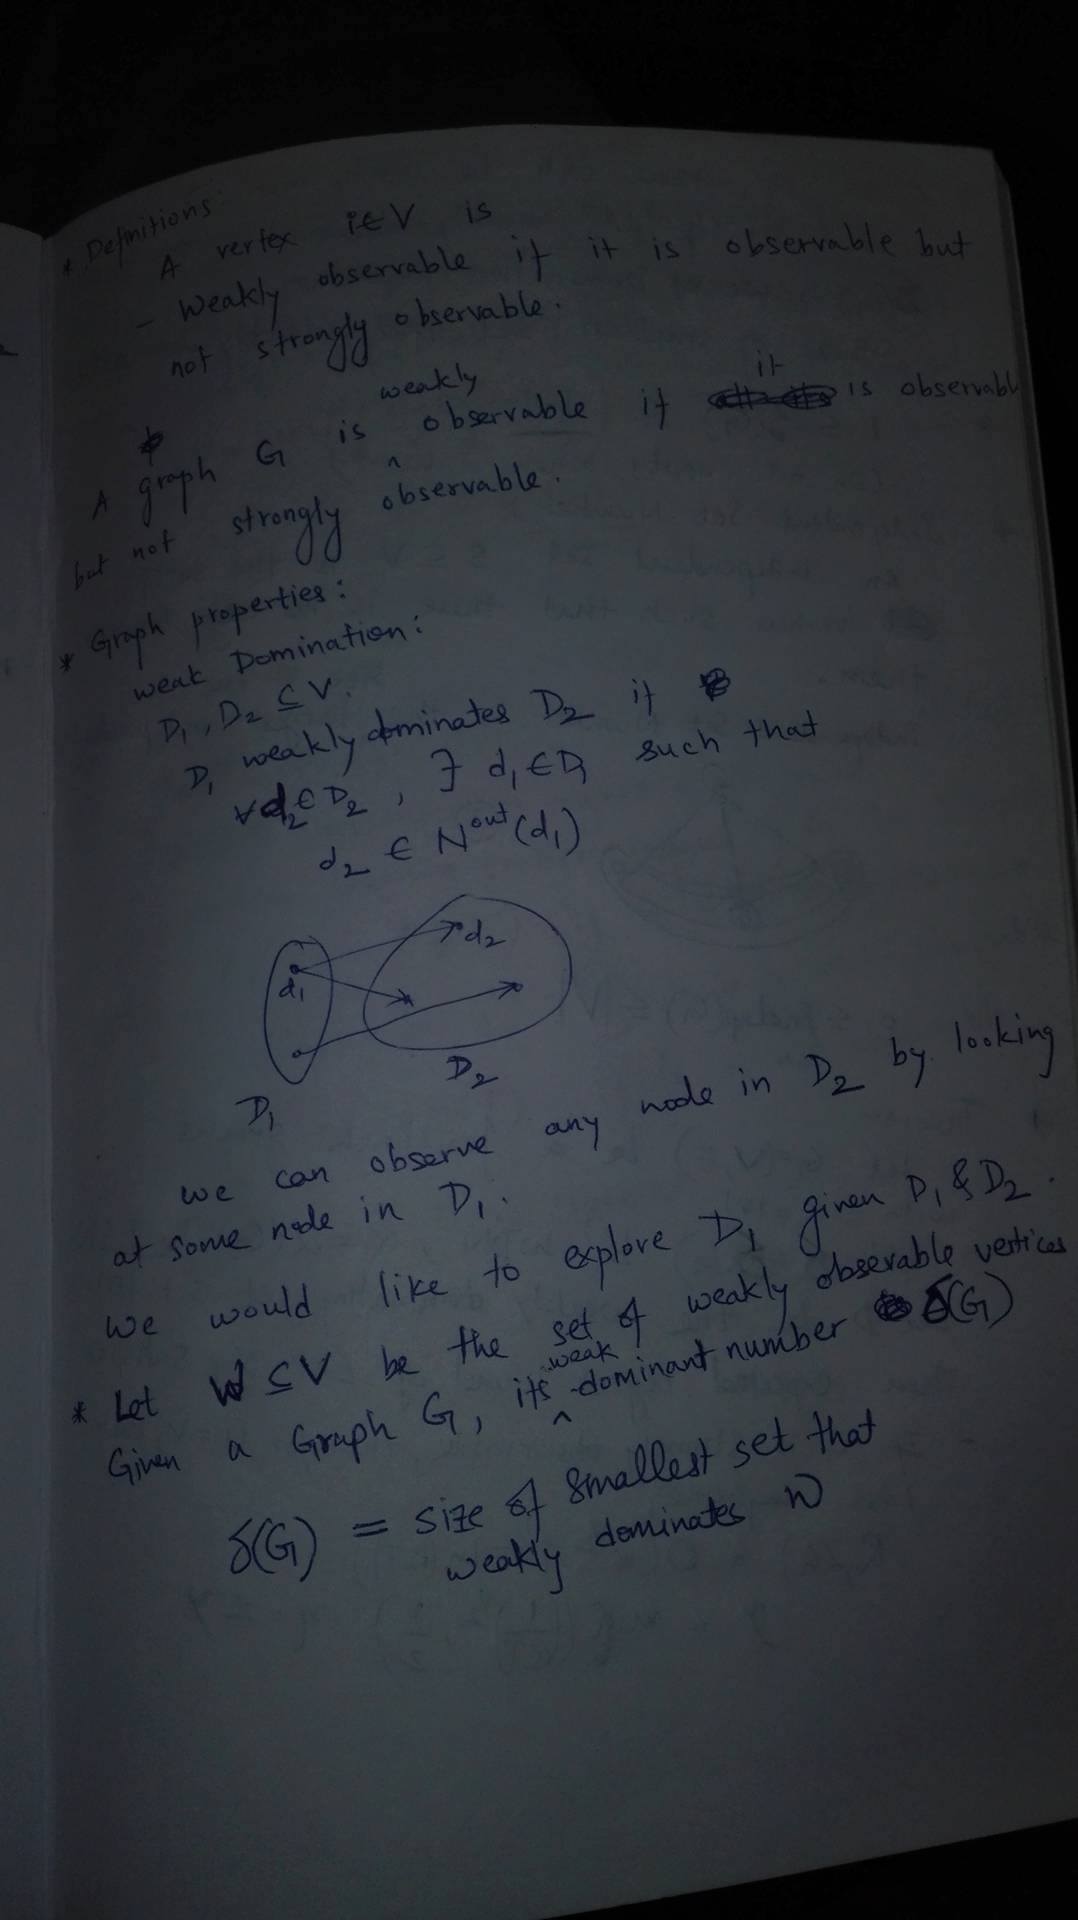 * Definitions
A vertex i∈V is
- Weakly observable if it is observable but
not strongly observable.
A graph G is weakly observable if it is observabl
but not strongly observable.
* Graph properties:
weak Domination:
D₁, D₂ ⊆ V.
D₁ weakly dominates D₂ if
∀d₂∈D₂, ∃ d₁∈D₁ such that
d₂ ∈ N^out(d₁)
d₂
d₁
D₂
D₁
we can observe any node in D₂ by looking
at some node in D₁.
We would like to explore D₁ given D₁ & D₂.
* Let W ⊆ V be the set of weakly obserable vertices
Given a Graph G, its weak dominant number δ(G)
δ(G) = size of smallest set that
weakly dominates W